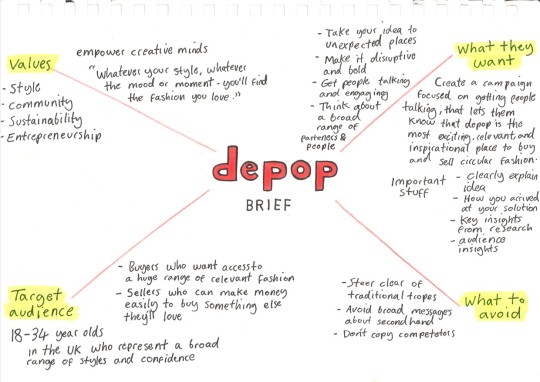 Values
- Style
- Community
- Sustainability
- Entrepreneurship
empower creative minds
"Whatever your style, whatever
the mood or moment - you'll find
the fashion you love."
- Take your idea to
unexpected places
- Make it disruptive
and bold
- Get people talking
and engaging
- Think about
a broad
range of
parteners &
people
What they
want
Create a campaign
focused on getting people
talking, that lets them
know that depop is the
most exciting, relevant, and
inspirational place to buy
and sell circular fashion.
Important
stuff
- Clearly explain
idea
- How you arrived
at your solution
- Key insights
from research
- audience
insights
depop
BRIEF
Target
audience
18-34 year olds
in the UK who represent a broad
range of styles and confidence
- Buyers who want access to
a huge range of relevant fashion
- Sellers who can make money
easily to buy something else
they'll love
What to
avoid
- Steer clear of
traditional tropes
- Avoid broad messages
about secondhand
- Don't copy competetors